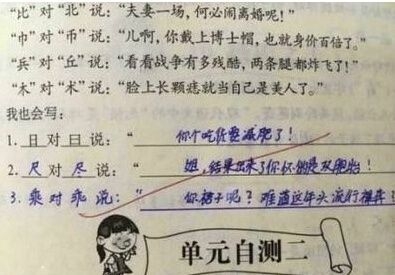 "比"对"北"说："夫妻一场，何必闹离婚呢！"
"巾"对"币"说："儿啊，你戴上博士帽，也就身价百倍了。"
"兵"对"丘"说："看看战争有多残酷，两条腿都炸飞了！"
"木"对"术"说："脸上长颗痣就当自己是美人了。"
我也会写：
1. 日对曰说："你个吃货要减肥了！
2. 尺对尽说："姐，结果出来了你怀的是双胞胎！
3. 乘对乖说："你裤子呢？难道这年头流行裸奔？
单元自测二